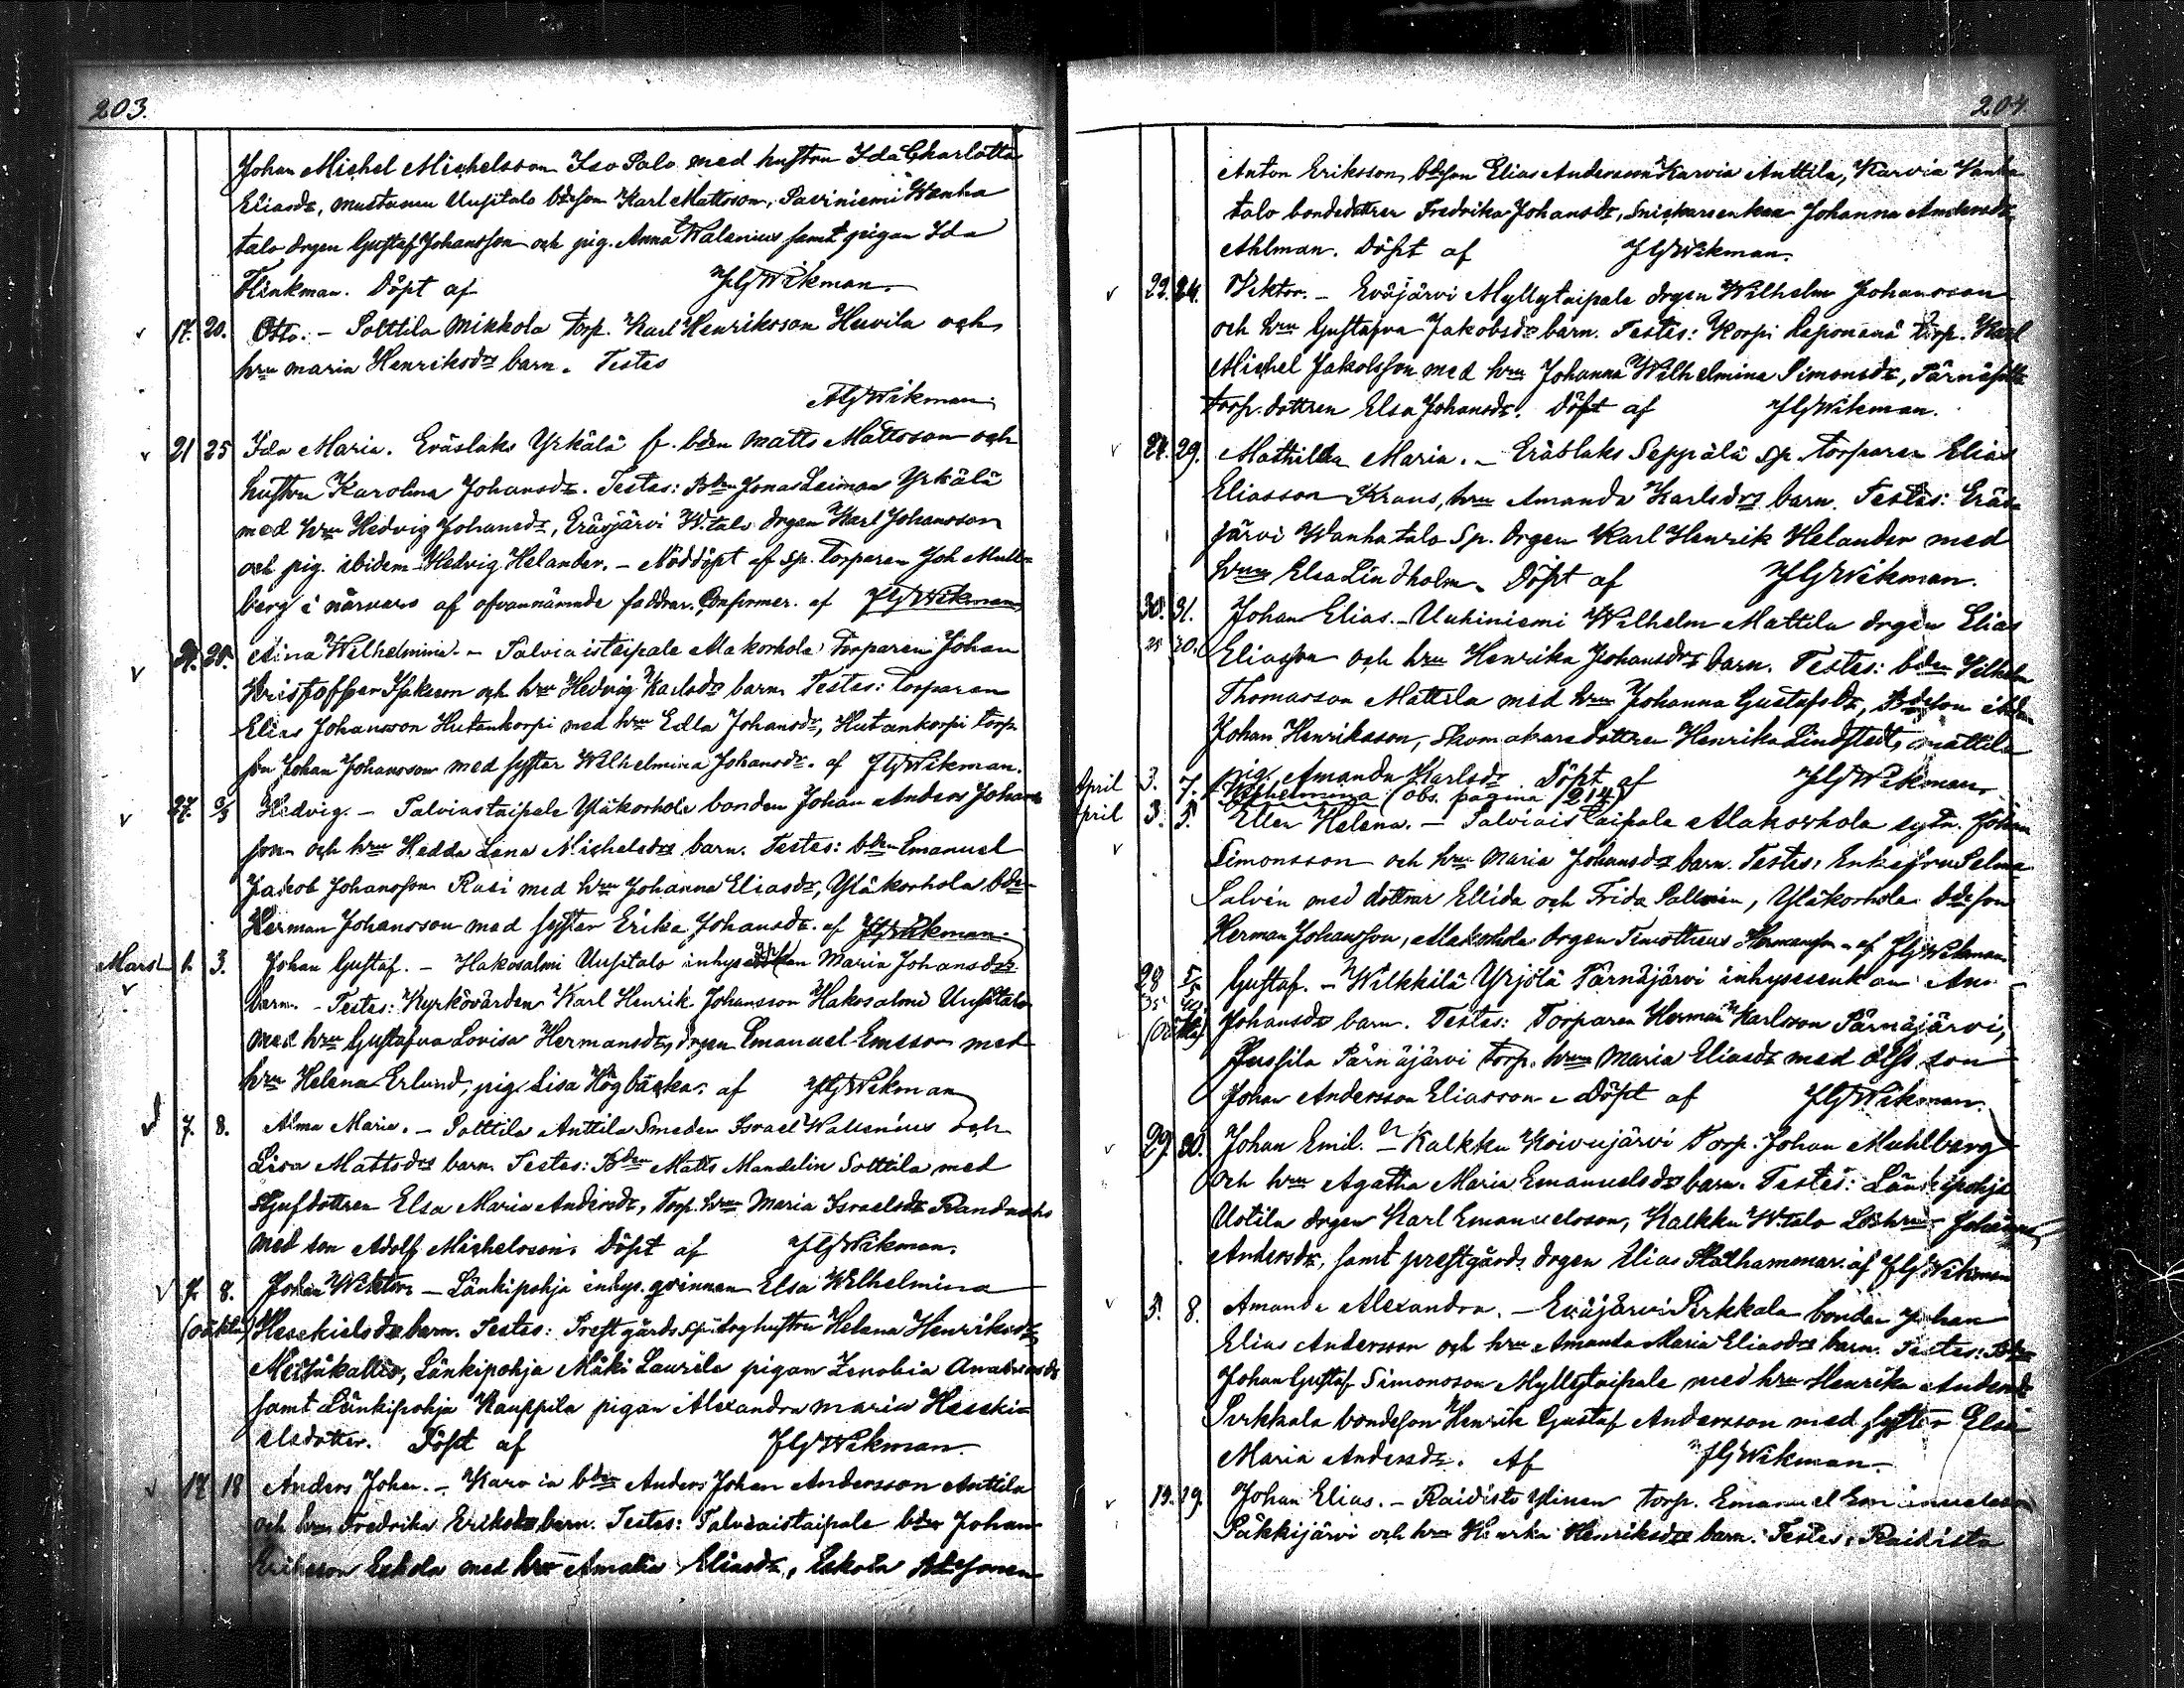 203.
Johan Michel Michelsson Iso Salo med hustru Ida Charlotta
Eliasdr, Mustanen Uusitalo bdeson Karl Mattsson, Paviniemi Wanha
talo drgen Gustaf Johansson och pig. Anna Walenius samt pigan Ida
Flinkman. Döpt af JGWikman.
17. 20. Otto. – Solttila Mikkola Torp. Karl Henriksson Huvila och
hru Maria Henriksdrs barn. Testes
JGWikman.
21 25 Ida Maria. Eräslaks Yrkälä f. bden Matts Mattsson och
hustru Karolina Johansdr. Testes: Bden Jonas Leiman Yrkälä
med hru Hedvig Johansdr, Eräsjärvi W.talo drgen Karl Johansson
och pig. ibidem Hedvig Helander. – Nöddöpt af Sp. Torparen Joh Muhl-
berg i närvaro af ofvannämnde faddrar. Confirmer. af JGWikman
Aina Wilhelmina. – Talviaistaipale Alakorhola Torparen Johan
Kristoffer Isakson och hru Hedvig Karlsdrs barn. Testes: Torparen
Elias Johansson Hutankorpi med hru Edla Johansdr, Hutankorpi torp.
son Johan Johansson med syster Wilhelmina Johansdr. af JGWikman.
27. 3/3 Hedvig. – Talviastaipale Yläkorhola bonden Johan Anders Johans-
son och hru Hedda Lena Michelsdrs barn. Testes: bden Emanuel
Jakob Johansson Rasi med hru Johanna Eliasdr, Yläkorhola bde-
Herman Johansson med syster Erika Johansdr. af JGWikman.
Mars 1. 3. Johan Gustaf. – Hakosalmi Uusitalo inhyses Maria Johansdrs
barn. – Testes: Kyrkövärden Karl Henrik Johansson Hakosalmi Uusitalo
med hru Gustafva Lovisa Hermansdr, drgen Emanuel Emsson med
hru Helena Erlund, pig. Lisa Högbacka. af JGWikman
7. 8. Alma Maria. – Solttila Anttila Smeden Israel Wallenius och
Lisa Mattsdrs barn. Testes: Bden Matts Mandelin Solttila med
Styfdottren Elsa Maria Andersdr, Torp. hru Maria Israelsdr
med son Adolf Michelsson. Döpt af JGWikman.
7. 8. Johan Wiktor. – Länkipohja inhys. qvinnan Elsa Wilhelmina
(oäkta) Hesekielsdrs barn. Testes: Prestgårds sp. drg hustru Helena Henriksdr
Metsäkallio, Länkipohja Mäki Laurila pigan Zenobia
samt Länkipohja Kauppila pigan Alexandra Maria Heseki-
elsdotter. Döpt af JGWikman.
17 18 Anders Johan. – Karvia bden Anders Johan Andersson Anttila
och hru Fredrika Eriksdrs barn. Testes: Talviaistaipale bden Johan
Eriksson Eskola med hru Amalia Eliasdr, Eskola bdesonen
204.
Anton Eriksson, bdeson Elias Andersson Karvia Anttila, Karvia Wanha
talo bondedottren Fredrika Johansdr, Snickarenkan Johanna Andersdr
Ahlman. Döpt af JGWikman.
22. 24. Viktor. – Eväjärvi Myllytaipale drgen Wilhelm Johansson
och hru Gustafva Jakobsdrs barn. Testes: Korpi Haponenä torp. Karl
Michel Jakobsson med hru Johanna Wilhelmina Simonsdr,
torp. dottren Elsa Johansdr. Döpt af JGWikman.
24. 29. Mathilda Maria. – Eräslaks Seppälä sp. Torparen Elias
Eliasson Kraus, hru Amanda Karlsdrs barn. Testes: Eräs-
järvi Wanhatalo Sp. drgen Karl Henrik Helander med
hru Elsa Lindholm. Döpt af JGWikman.
30. 31. Johan Elias. – Uuhiniemi Wilhelm Mattila drgen Elias
Eliasson och hru Henrika Johansdrs barn. Testes: bden Vilhelm
Thomasson Mattila med hru Johanna Gustafsdr, Bdeson ibdm
Johan Henriksson, Skomakaredottren Henrika Lindstedt, Mattila
pig. Amanda Karlsdr Döpt af JGWikman.
April 3. 7. Wilhelmina (obs. pagina 214)
April 3. 5. Ellen Helena. – Talviaistaipale Alakorhola sytn. Johan
Simonsson och hru Maria Johansdrs barn. Testes: Enkefru Selma
Salvén med döttrar Ellida och Frida Sallvén, Yläkorhola bdeson
Herman Johansson, Alakorhola drgen Timotheus Hermansson – af JGWikman
28 Gustaf. – Wilkkilä Yrjölä Pärnäjärvi inhysesenkan
(oäkta) Johansdrs barn. Testes: Torparen Herman Karlsson Pärnäjärvi,
Pärnäjärvi Torp. hru Maria Eliasdr med son
Johan Andersson Eliasson – Döpt af JGWikman.
29. 30. Johan Emil. – Kalkku Koivujärvi Torp. Johan Muhlberg
och hru Agatha Maria Emanuelsdrs barn. Testes: Länkipohja
Uotila drgen Karl Emanuelsson, Kalkku W.talo Johanna
Andersdr, samt prestgårds drgen Elias Stålhammar. af JGWikman
5. 8. Amanda Alexandra. – Eväjärvi Pirkkala bonden Johan
Elias Andersson och hru Amanda Maria Eliasdrs barn. Testes: Bden
Johan Gustaf Simonsson Myllytaipale med hru Henrika Andersdr
Pirkkala bondeson Henrik Gustaf Andersson med syster Elsa
Maria Andersdr. Af JGWikman.
19. 19. Johan Elias. – Raidisto Ylinen torp. Emanuel Emanuelsson
Säkkijärvi och hru Henrika Henriksdrs barn. Testes: Raidisto